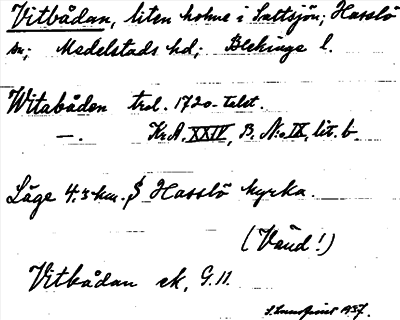 Vitbådan, liten holme i Saltsjön; Hasslö
sn; Medelstads hd; Blekinge l.
Witabåden trol. 1720-talet.
—. Kr.A. XXIV, B. No IX, lit. b
Läge 4.3 km. S Hasslö kyrka.
(Vänd!)
Vitbådan ek. G. 11.
1937.